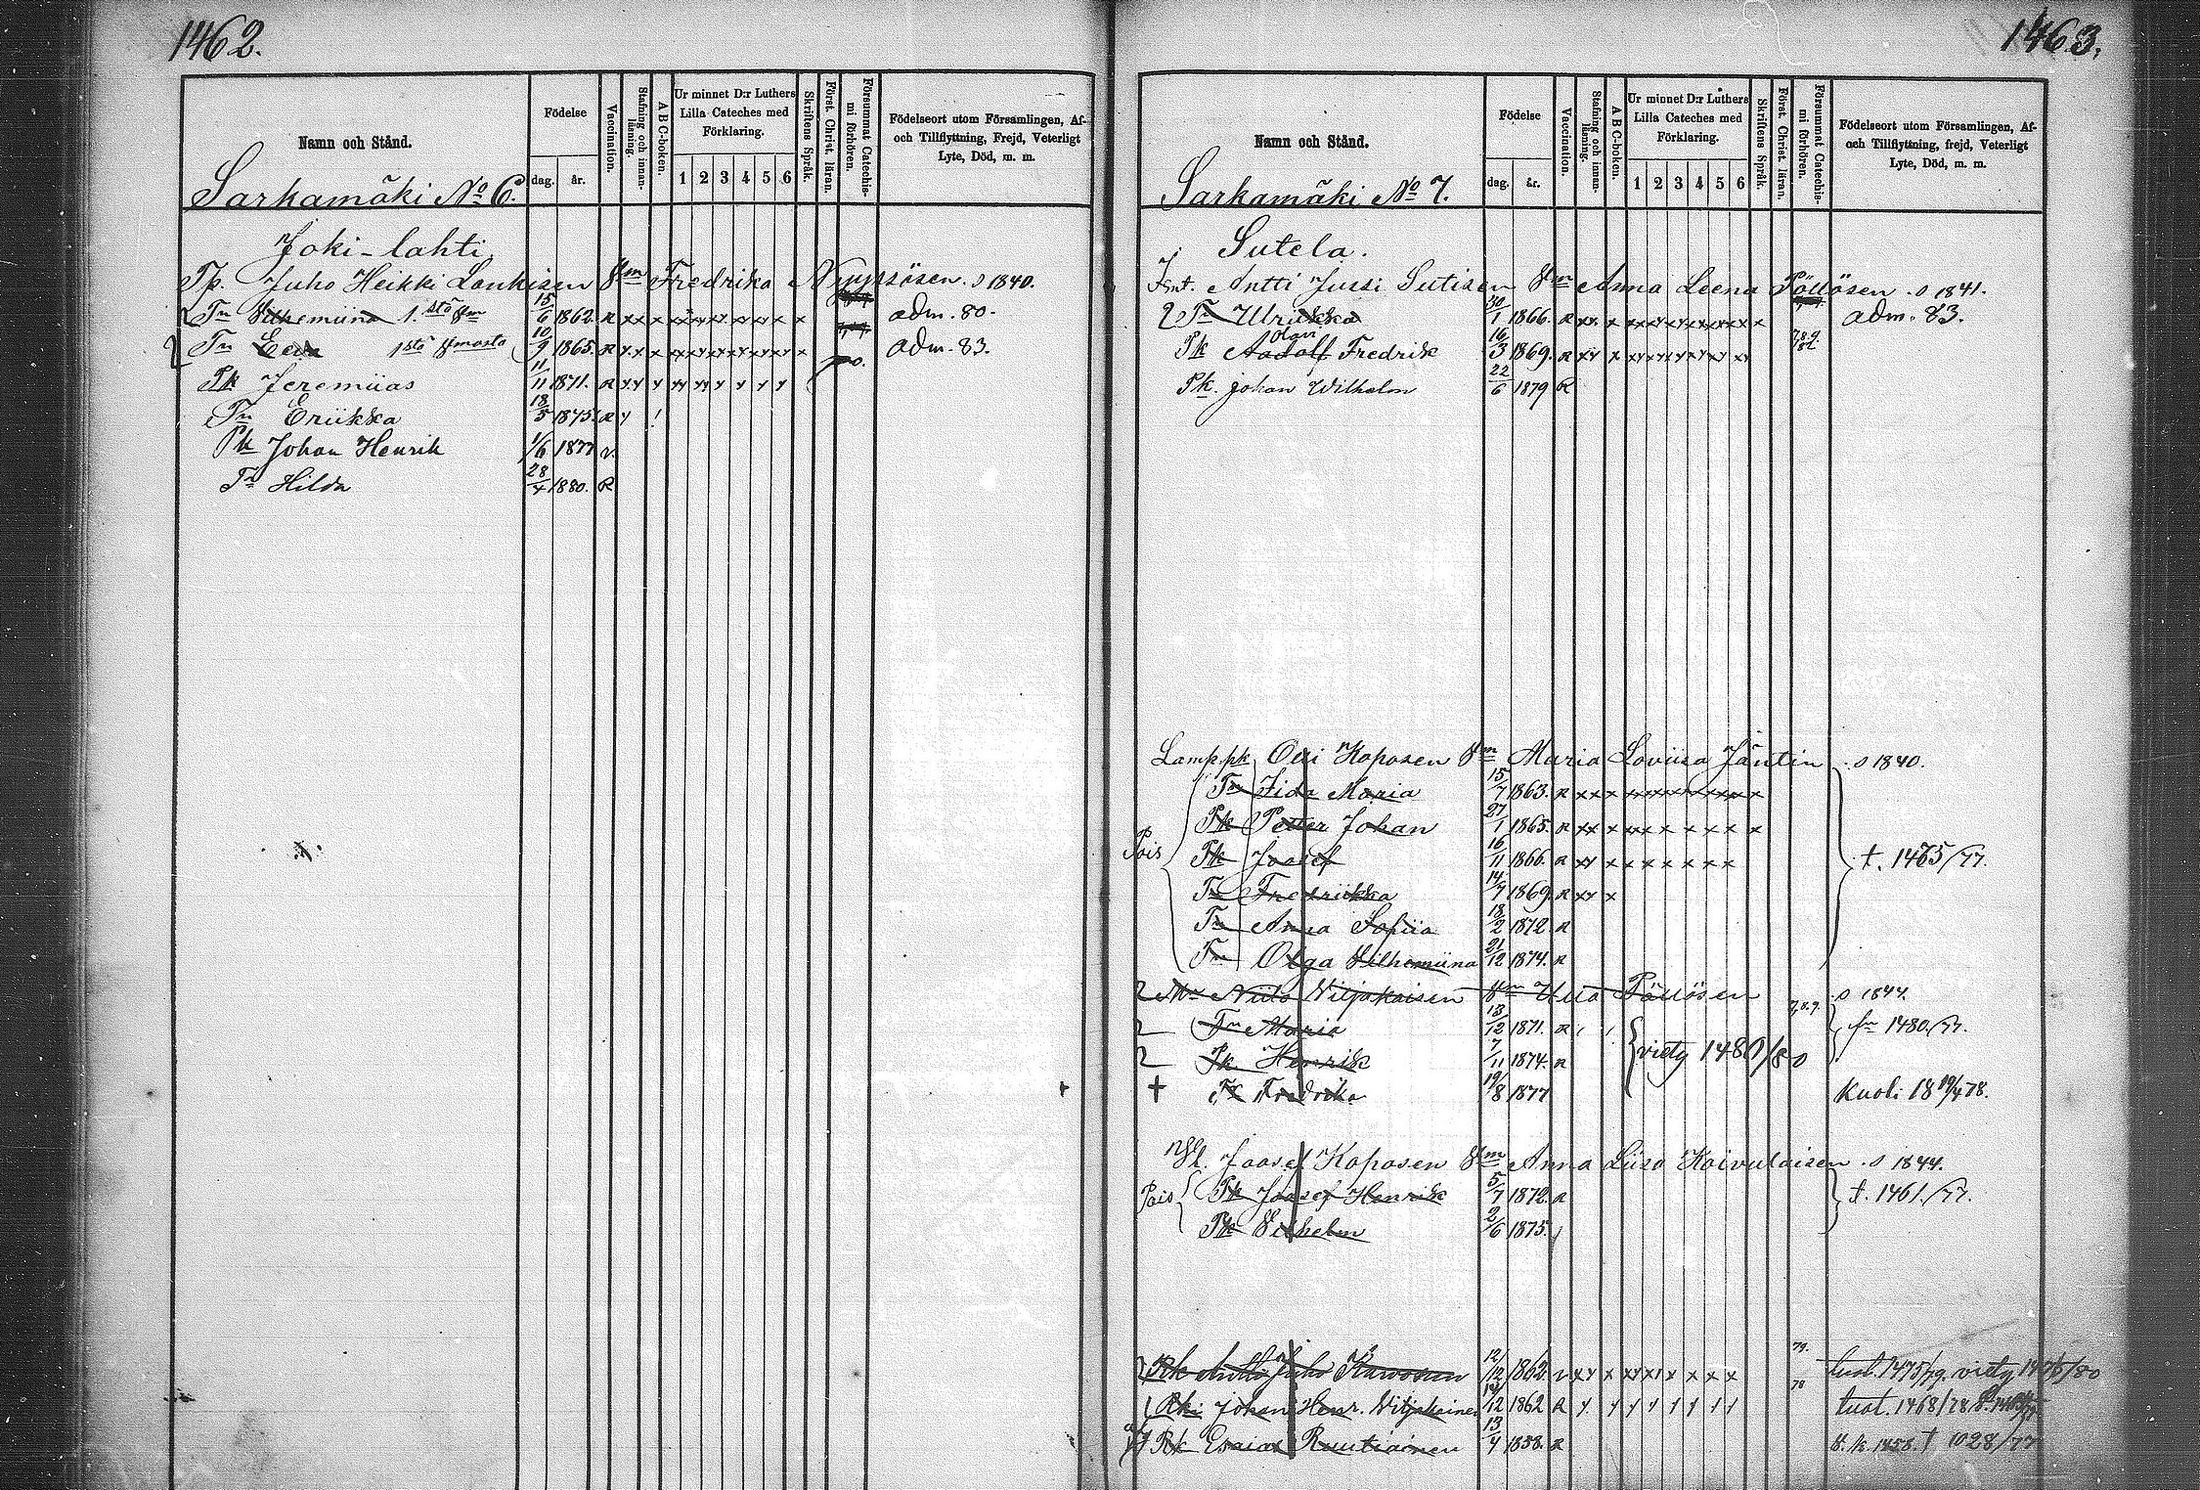 1462.
Namn och Stånd.
Födelse
dag.
år.
Vaccination.
Stafning och innan-läsning.
A B C-boken.
Ur minnet D:r Luthers Lilla Cateches med Förklaring.
1 2 3 4 5 6
Skriftens Språk.
Först. Christ. läran.
Försummat Catechis-mi förhören.
Födelseort utom Församlingen, Af- och Tillflyttning, Frejd, Veterligt Lyte, Död, m. m.
Sarkamäki No 6.
Joki-lahti
Tp. Juho Heikki Laukisen Vm Fredrika Nyyssösen. s 1840.
Tr Vilhemiina 1.stä Vm 15/6 1862. R x x x x x x x x x x x adm. 80.
Tr Eeva 1stä Vmosta 10/9 1865. R x x x x x x x x x x adm. 83.
Pk Jeremiias 11/11 1871. R
Tr Eriikka 18/5 1875. R
Pk Johan Henrik 1/6 1877
Tr Hilda 28/4 1880. R
1463.
Namn och Stånd.
Födelse
dag.
år.
Vaccination.
Stafning och innan-läsning.
A B C-boken.
Ur minnet D:r Luthers Lilla Cateches med Förklaring.
1 2 3 4 5 6
Skriftens Språk.
Först. Christ. läran.
Försummat Catechis-mi förhören.
Födelseort utom Församlingen, Af- och Tillflyttning, frejd, Veterligt Lyte, Död, m. m.
Sarkamäki No 7.
Sutela.
Antti Jussi Sutisen Vm Anna Leena Pöllösen s 1841.
Tr Ulriikka 30/1 1866. R adm. 83.
Pk Aadolf Fredrik 16/3 1869. R
Pk. Johan Wilhelm 22/6 1879 R
Lamp.pk Olli Koposen Vm Maria Loviisa Jäntin s 1840.
Tr Iida Maria 15/7 1863. R
Pk Petter Johan 27/1 1865. R
Pois Pk Joosef 16/11 1866. R t. 1465/77.
Tr Fredriikka 14/7 1869. R
Tr Anna Sofiia 18/2 1872. R
Tr Olga Vilhemiina 21/12 1874. R
Niilo Viljakaisen Vm Ulla Pöllösen s 1844.
Tr Maria 13/12 1871. R 1480/77.
Pk. Henrik 7/11 1874. R viety 1480/80
† Fredrika 19/8 1877 Kuoli 18 19/4 78.
Joosef Koposen Vm Anna Liisa Koivulaisen s 1844.
Pois Pk Joosef Henrik 5/7 1872. R t. 1461/77.
Pk Vilhelm 2/6 1875.
Rk Antti Juho 12/12 1862. 79. tuot. 1475/79. viety
Rk. Johan Henr. Viljakainen 14/12 1862 R 78 tuot. 1468/78
Rk Esaias Ruutiainen 13/4 1858. R 1028/77